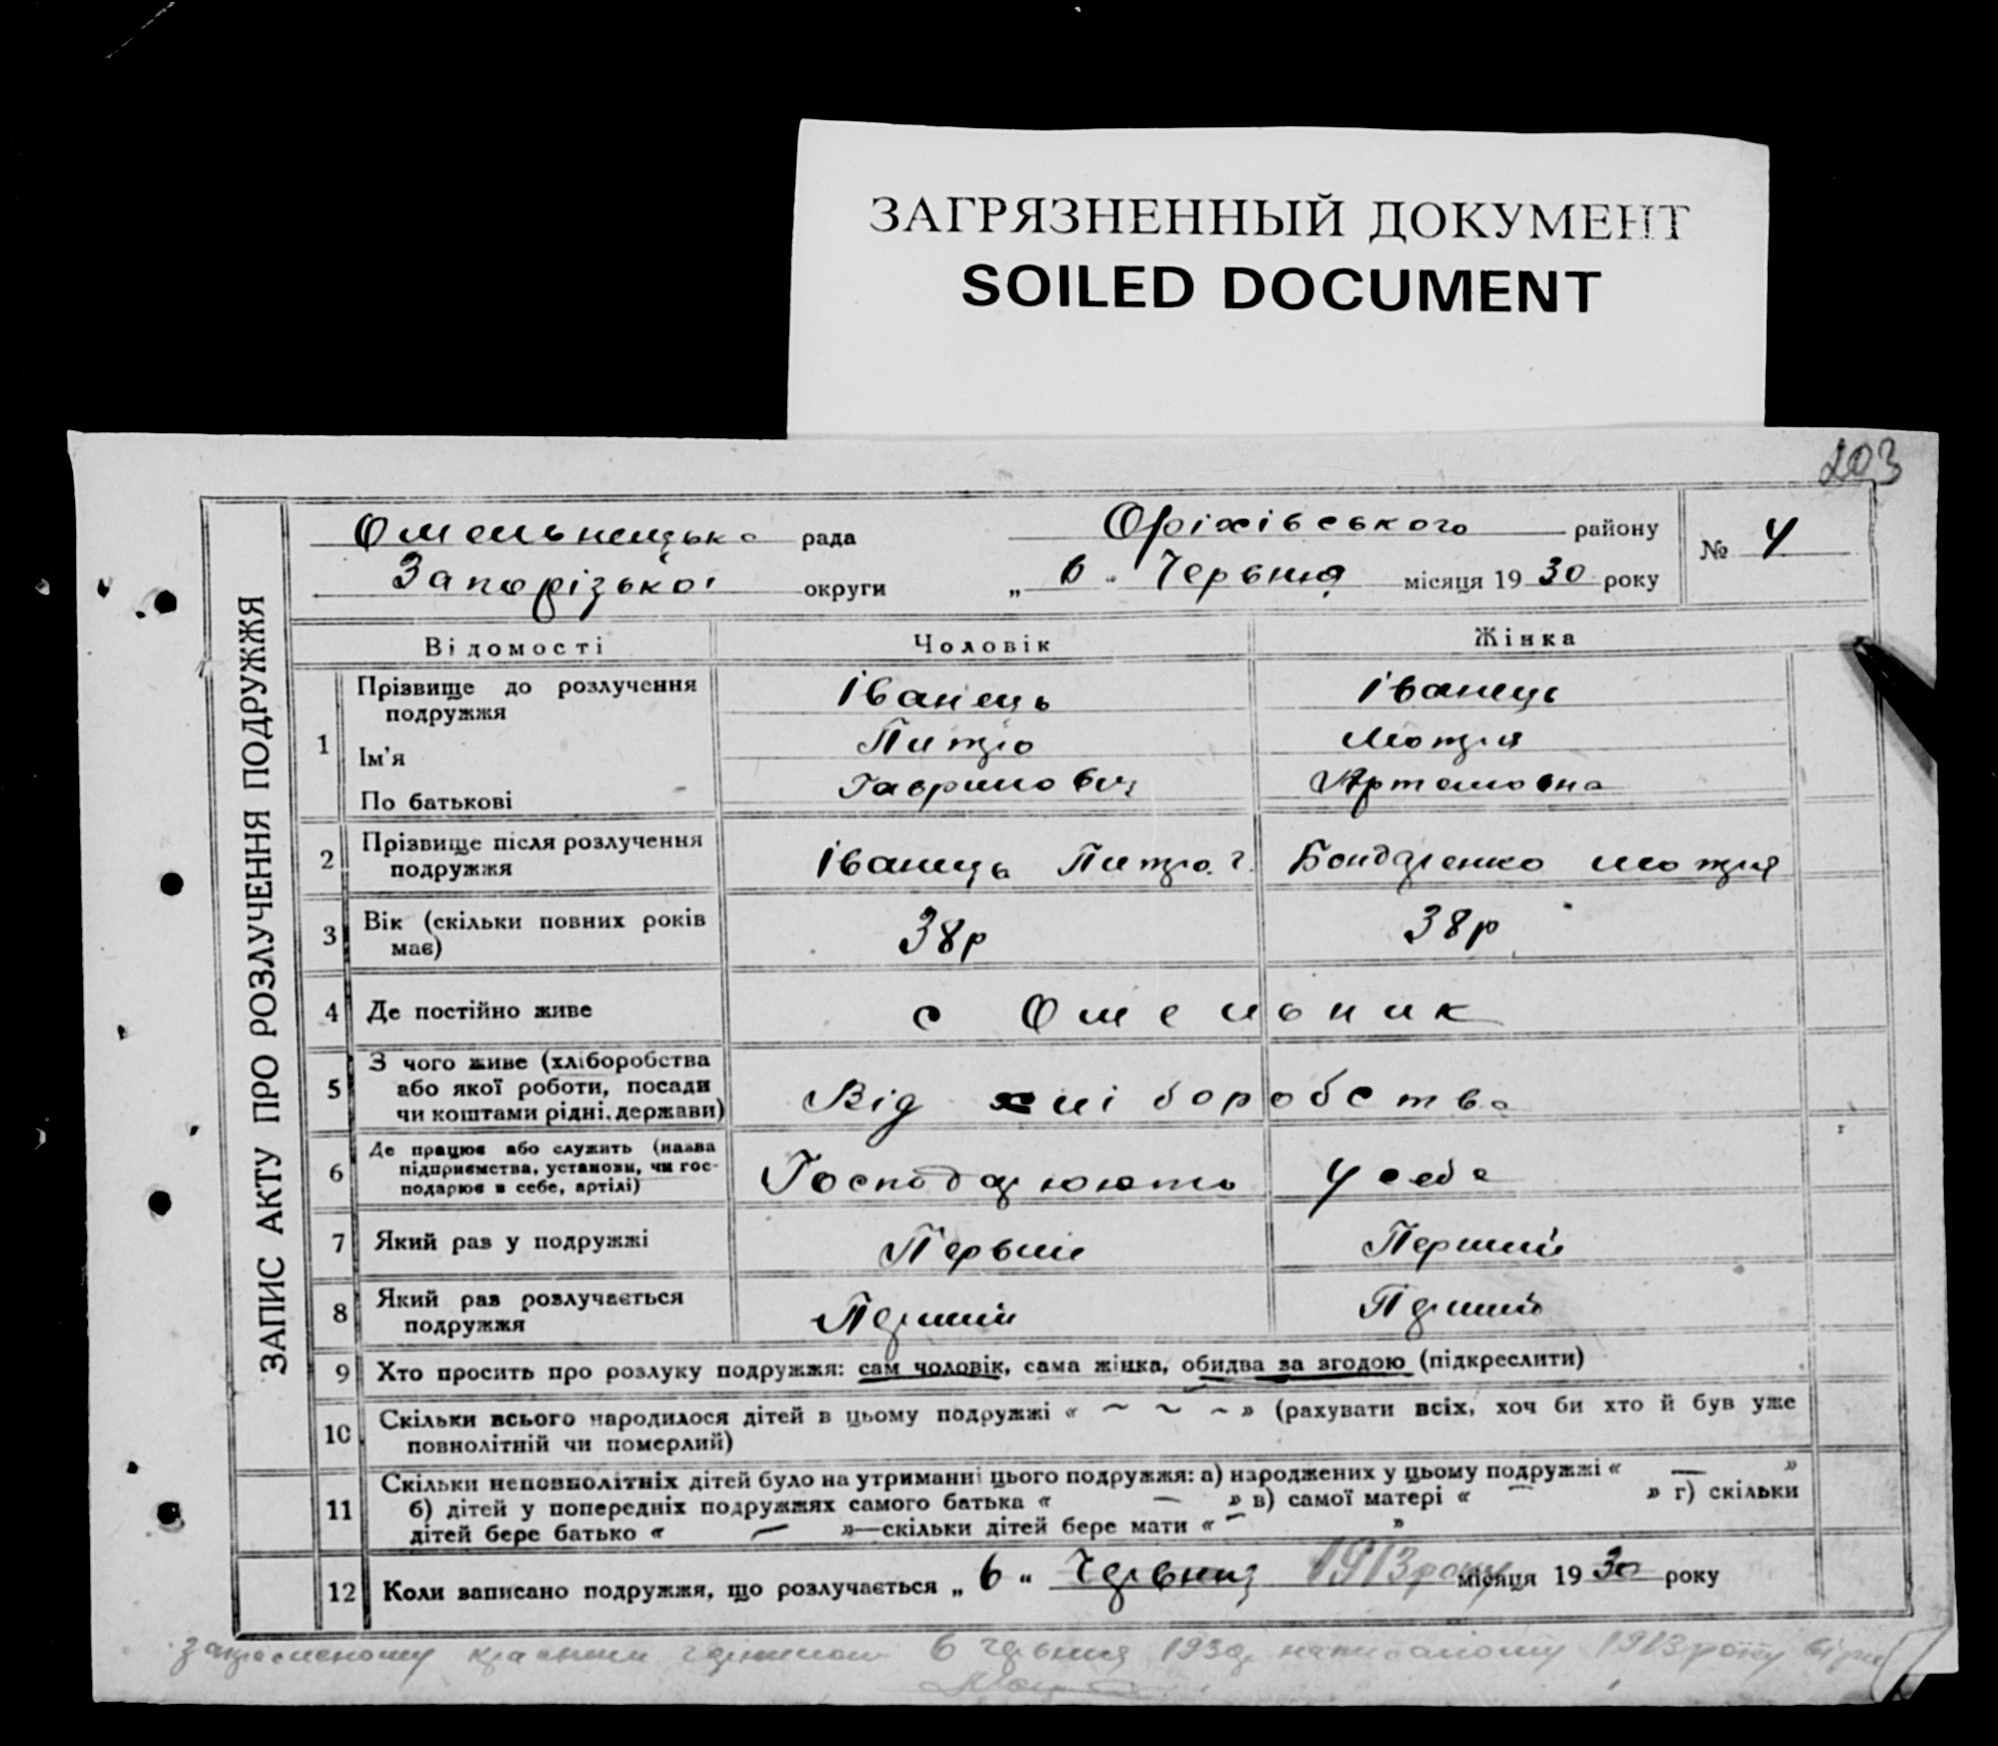 ЗАГРЯЗНЕННЫЙ ДОКУМЕНТ
SOILED DOCUMENT
203
ЗАПИС АКТУ ПРО РОЗЛУЧЕННЯ ПОДРУЖЖЯ
Омельницька рада Оріхівського району № 4
Запорізької округи „ 6 " Червня місяця 19 30 року
Відомості Чоловік Жінка
1 Прізвище до розлучення подружжя Іванець Іванець
Ім'я Питро Мотря
По батькові Гаврилович Артемовна
2 Прізвище після розлучення подружжя Іванець Питро. Г. Бондаренко Мотря
3 Вік (скільки повних років має) 38р 38р.
4 Де постійно живе с Омельник
5 З чого живе (хліборобства або якої роботи, посади чи коштами рідні, держави) Від хліборобства
6 Де працює або служить (назва підприємства, установи, чи господарює в себе, артілі) Господарюють У себе
7 Який раз у подружжі Первий Перший
8 Який раз розлучається подружжя Перший Перший
9 Хто просить про розлуку подружжя: сам чоловік, сама жінка, обидва за згодою (підкреслити)
10 Скільки всього народилося дітей в цьому подружжі « ~ ~ ~ » (рахувати всіх, хоч би хто й був уже
повнолітній чи померлий)
11 Скільки неповнолітніх дітей було на утриманні цього подружжя: а) народжених у цьому подружжі « — »
б) дітей у попередніх подружжях самого батька « — » в) самої матері « — » г) скільки
дітей бере батько « — »—скільки дітей бере мати « — »
12 Коли записано подружжя, що розлучається „ 6 " Червня 1913 року місяця 19 30 року
красним 6 червня 1930 написаному 1913 року